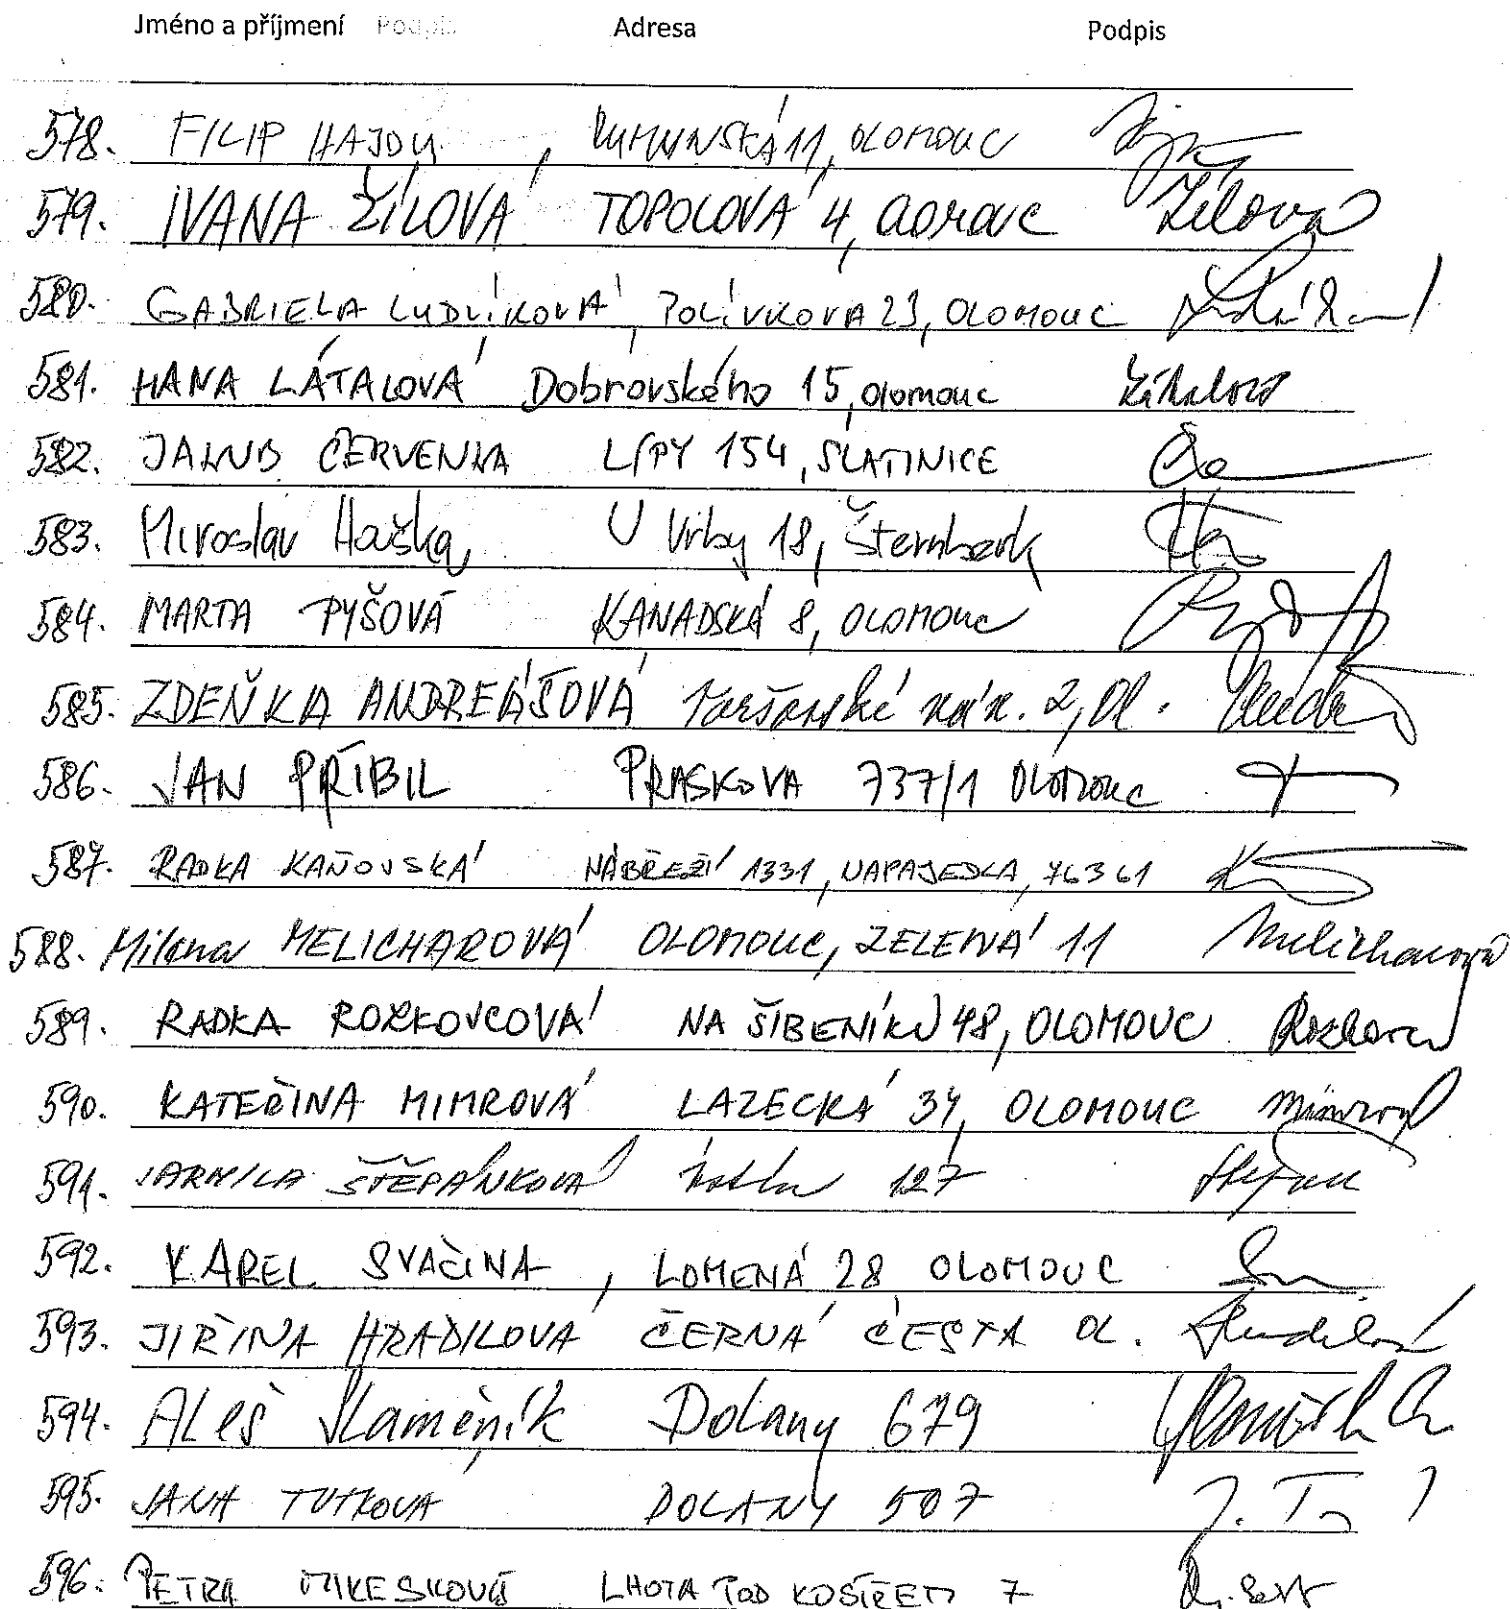 Jméno a příjmení Podpis Adresa Podpis
578. FILIP HAJDU, RUMUNSKÁ 11, OLOMOUC
579. IVANA ŽÍLOVÁ TOPOLOVÁ 4, Olomouc Žílová
580. GABRIELA LUDVÍKOVÁ, POLÍVKOVA 23, OLOMOUC
581. HANA LÁTALOVÁ Dobrovského 15, Olomouc Látalová
582. JAKUB ČERVENKA LÍPY 154, SLATINICE
583. Miroslav Haška, U Vrby 18, Šternberk
584. MARTA PYŠOVÁ KANADSKÁ 8, OLOMOUC
585. ZDEŇKA ANDREÁŠOVÁ nám. 2, Ol.
586. JAN PŘIBIL PRASKOVA 737/1 OLOMOUC
587. RADKA KAŇOVSKÁ NÁBŘEŽÍ 1331, NAPAJEDLA, 76361
588. Milena MELICHAROVÁ OLOMOUC, ZELENÁ 11 Melicharová
589. RADKA ROZKOVCOVÁ NA ŠIBENÍKU 48, OLOMOUC
590. KATEŘINA MIMROVÁ LAZECKÁ 34, OLOMOUC
591. JARMILA ŠTĚPÁNKOVÁ 127
592. KAREL SVAČINA, LOMENÁ 28 OLOMOUC
593. JIŘINA HRADILOVÁ ČERNÁ CESTA OL. Hradilová
594. ALeš Slaměník Dolany 679
595. JANA TUTKOVÁ DOLANY 507
596. PETRA MIKESKOVÁ LHOTA POD KOSÍŘEM 7